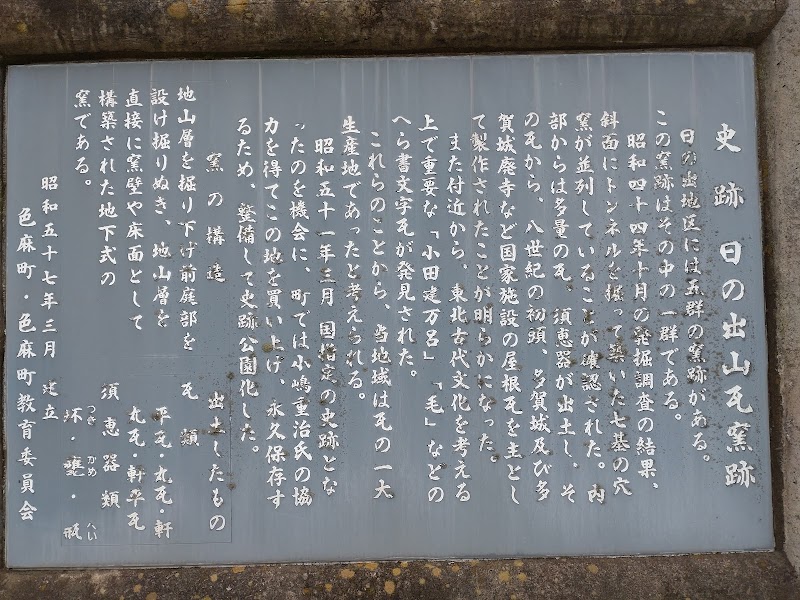 史跡 日の出山瓦窯跡
日の出地区には五群の窯跡がある。
この窯跡はその中の一群である。
昭和四十四年十月の発掘調査の結果、
斜面にトンネルを掘って築いた七基の穴
窯が並列していることが確認された。内
部からは多量の瓦、須恵器が出土し、そ
の瓦から、八世紀の初頭、多賀城及び多
賀城廃寺など国家施設の屋根瓦を主とし
て製作されたことが明らかになった。
また付近から、東北古代文化を考える
上で重要な「小田建万呂」「毛」などの
へら書文字瓦が発見された。
これらのことから、当地域は瓦の一大
生産地であったと考えられる。
昭和五十一年三月 国指定の史跡とな
ったのを機会に、町では小嶋重治氏の協
力を得てこの地を買い上げ、永久保存す
るため、整備して史跡公園化した。
窯の構造
地山層を掘り下げ前庭部を
設け掘りぬき、地山層を
直接に窯壁や床面として
構築された地下式の
窯である。
出土したもの
瓦類
平瓦・丸瓦・軒
丸瓦・軒平瓦
須恵器類
坏・甕・瓶
つき かめ へい
昭和五十七年三月 建立
色麻町・色麻町教育委員会